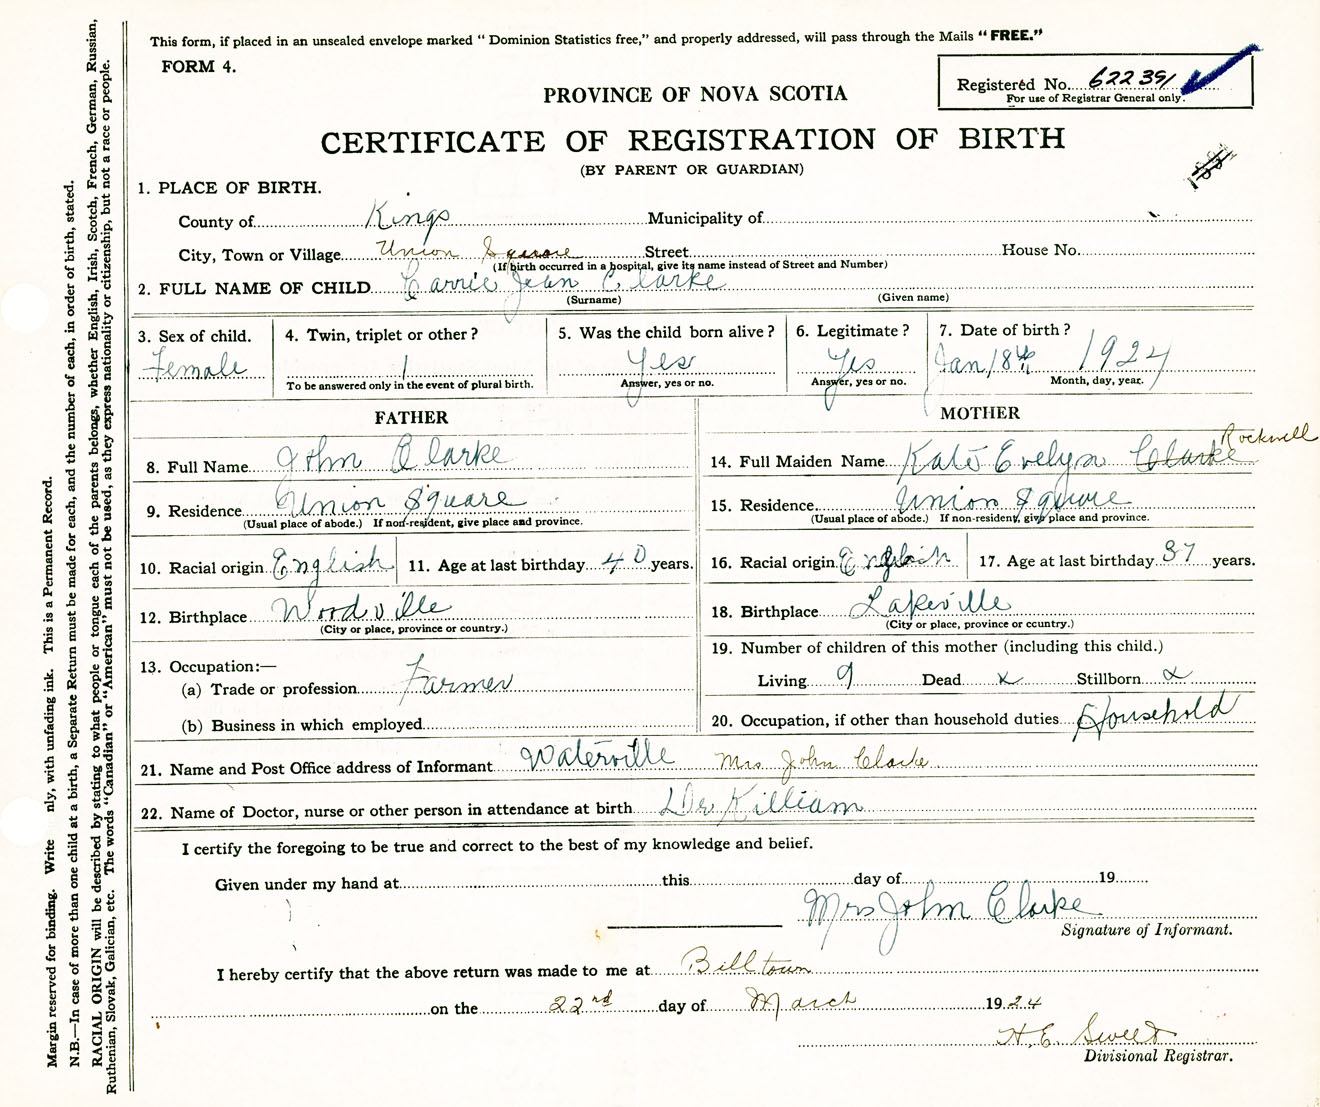 This form, if placed in an unsealed envelope marked “ Dominion Statistics free,” and properly addressed, will pass through the Mails “ FREE.”
FORM 4.
Registered No. 622391
For use of Registrar General only.
PROVINCE OF NOVA SCOTIA
CERTIFICATE OF REGISTRATION OF BIRTH
(BY PARENT OR GUARDIAN)
1. PLACE OF BIRTH.
County of Kings Municipality of
City, Town or Village Union Square Street House No.
(If birth occurred in a hospital, give its name instead of Street and Number)
2. FULL NAME OF CHILD Carrie Jean Clarke
(Surname) (Given name)
3. Sex of child. 4. Twin, triplet or other ? 5. Was the child born alive ? 6. Legitimate ? 7. Date of birth ?
Female 1 Yes Yes Jan 18th 1924
To be answered only in the event of plural birth. Answer, yes or no. Answer, yes or no. Month, day, year.
FATHER
8. Full Name John Clarke
9. Residence Union Square
(Usual place of abode.) If non-resident, give place and province.
10. Racial origin English 11. Age at last birthday 40 years.
12. Birthplace Woodville
(City or place, province or country.)
13. Occupation:—
(a) Trade or profession Farmer
(b) Business in which employed
MOTHER
14. Full Maiden Name Kate Evelyn Clarke Rockwell
15. Residence Union Square
(Usual place of abode.) If non-resident, give place and province.
16. Racial origin English 17. Age at last birthday 37 years.
18. Birthplace Lakeville
(City or place, province or country.)
19. Number of children of this mother (including this child.)
Living 9 Dead x Stillborn x
20. Occupation, if other than household duties Household
21. Name and Post Office address of Informant Waterville Mrs John Clarke
22. Name of Doctor, nurse or other person in attendance at birth Dr Killiam
I certify the foregoing to be true and correct to the best of my knowledge and belief.
Given under my hand at this day of 19
Mrs John Clarke
Signature of Informant.
I hereby certify that the above return was made to me at Billtown
on the 22nd day of March 1924
H. E. Sweet
Divisional Registrar.
Margin reserved for binding. Write nly, with unfading ink. This is a Permanent Record.
N.B.—In case of more than one child at a birth, a Separate Return must be made for each, and the number of each, in order of birth, stated.
RACIAL ORIGIN will be described by stating to what people or tongue each of the parents belongs, whether English, Irish, Scotch, French, German, Russian,
Ruthenian, Slovak, Galician, etc. The words “Canadian” or “American” must not be used, as they express nationality or citizenship, but not a race or people.